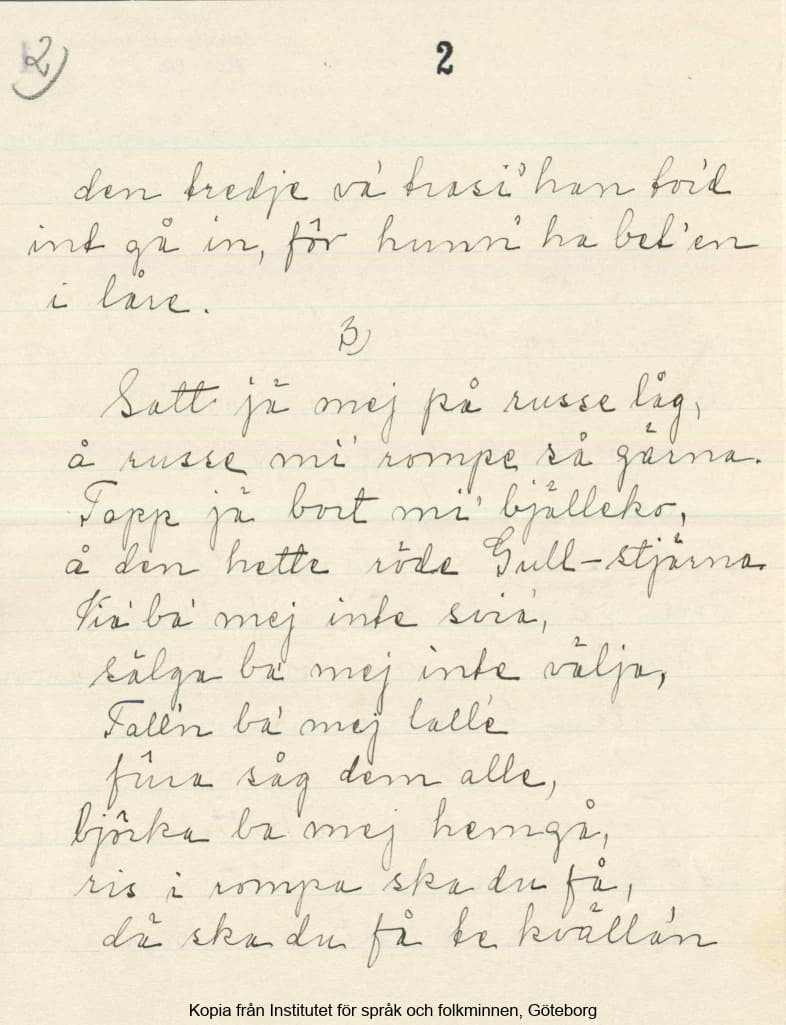 2)
2
den tredje va' trasi' han toi'd
int gå in, för hunn' ha bet'en
i låre.
3)
Satt jä mej på russe låg,
å russe mi' rompe så gärna.
Tapp jä bort mi' bjälleko,
å den hette röde Gull-stjärna.
Via' ba' mej inte svia',
sälga ba' mej inte välja,
Tall'n ba' mej lall'e
fûra såg dem alle,
björka ba mej hemgå,
ris i rompa ska du få,
dä ska du få te kvälla'n
Kopia från Institutet för språk och folkminnen, Göteborg